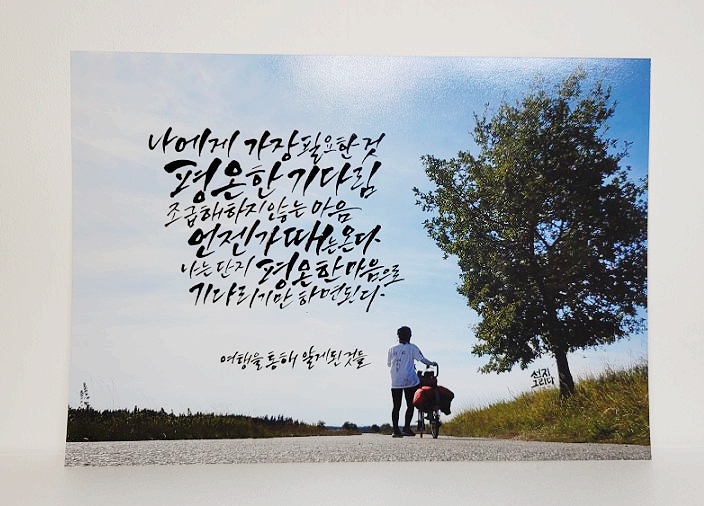 나에게 가장 필요한 것
평온한 기다림
조급해하지 않는 마음
언젠가 때는 온다.
나는 단지 평온한 마음으로
기다리기만 하면 된다.
여행을 통해 알게된 것들
선지
그리다